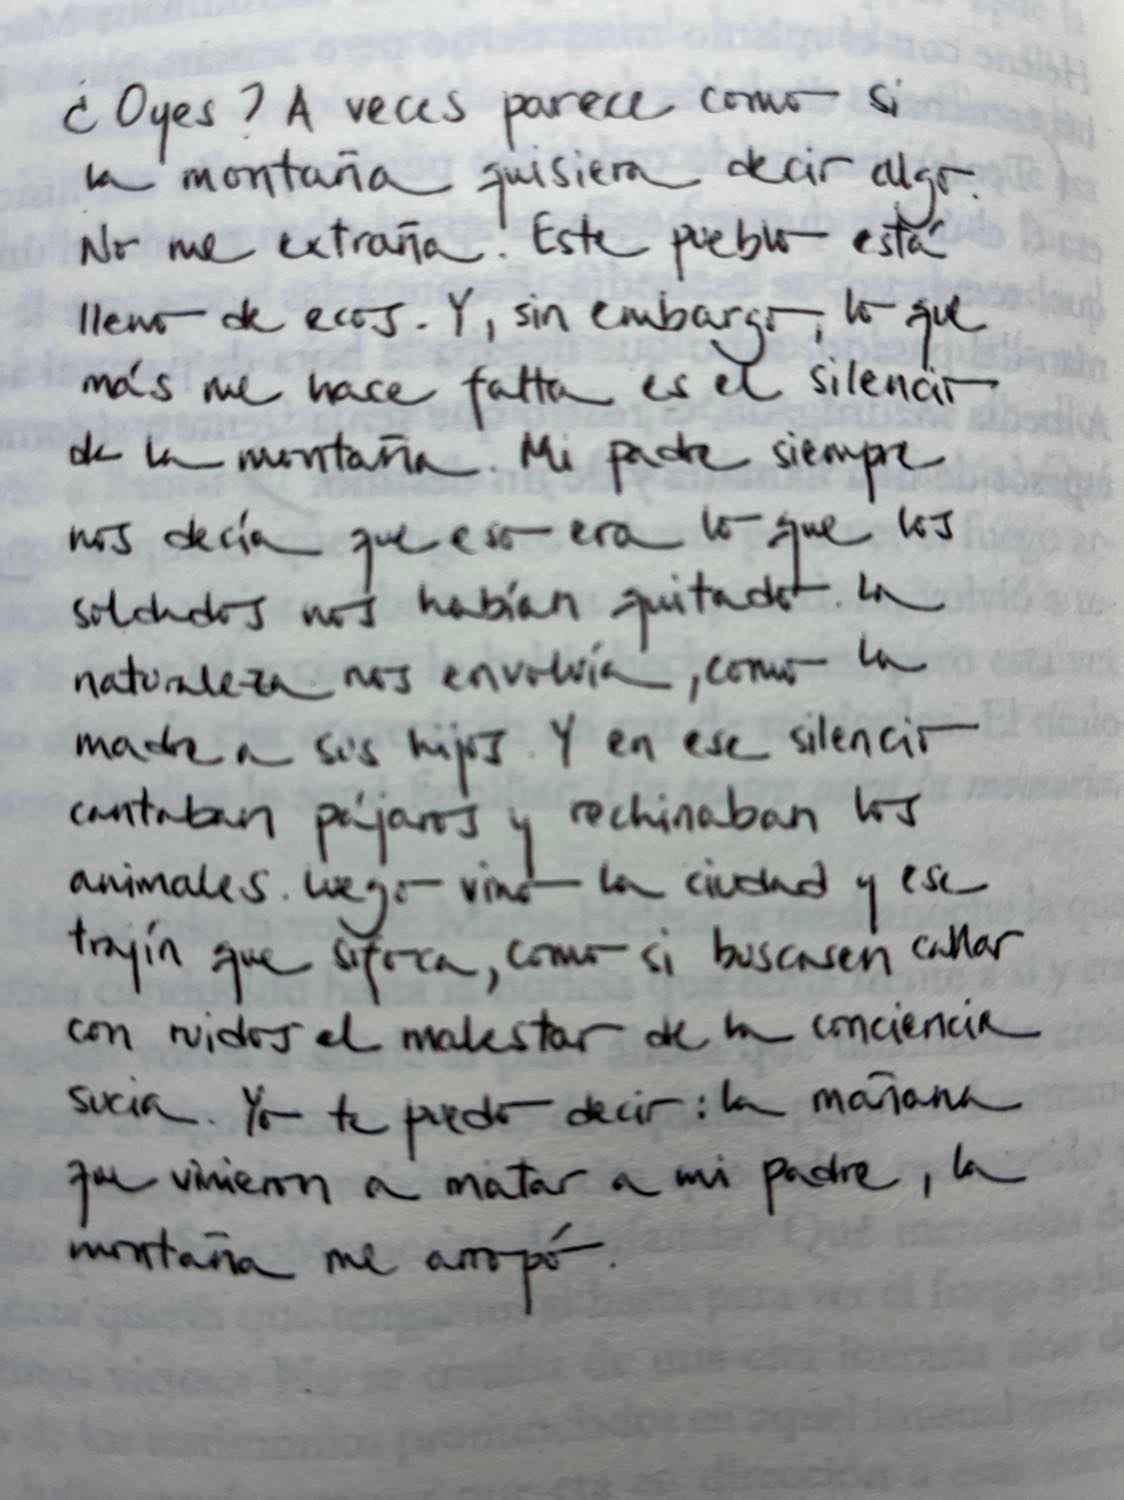 ¿Oyes? A veces parece como si
la montaña quisiera decir algo.
No me extraña. Este pueblo está
lleno de ecos. Y, sin embargo, lo que
más me hace falta es el silencio
de la montaña. Mi padre siempre
nos decía que eso era lo que los
soldados nos habían quitado. La
naturaleza nos envolvía, como la
madre a sus hijos. Y en ese silencio
cantaban pájaros y rechinaban los
animales. Luego vino la ciudad y ese
trajín que sofoca, como si buscasen callar
con ruidos el malestar de la conciencia
sucia. Yo te puedo decir: la mañana
que vinieron a matar a mi padre, la
montaña me arropó.